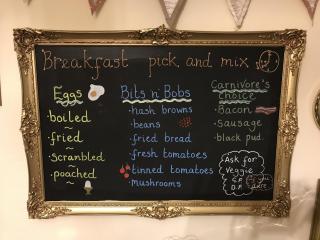 Breakfast pick and mix
Eggs
boiled
~
fried
~
scrambled
~
poached
Bits n' Bobs
·hash browns
·beans
·fried bread
·fresh tomatoes
·tinned tomatoes
·mushrooms
Carnivore's
Choice
·Bacon
·Sausage
·black pud.
Ask for
Veggie
G.F
D.F